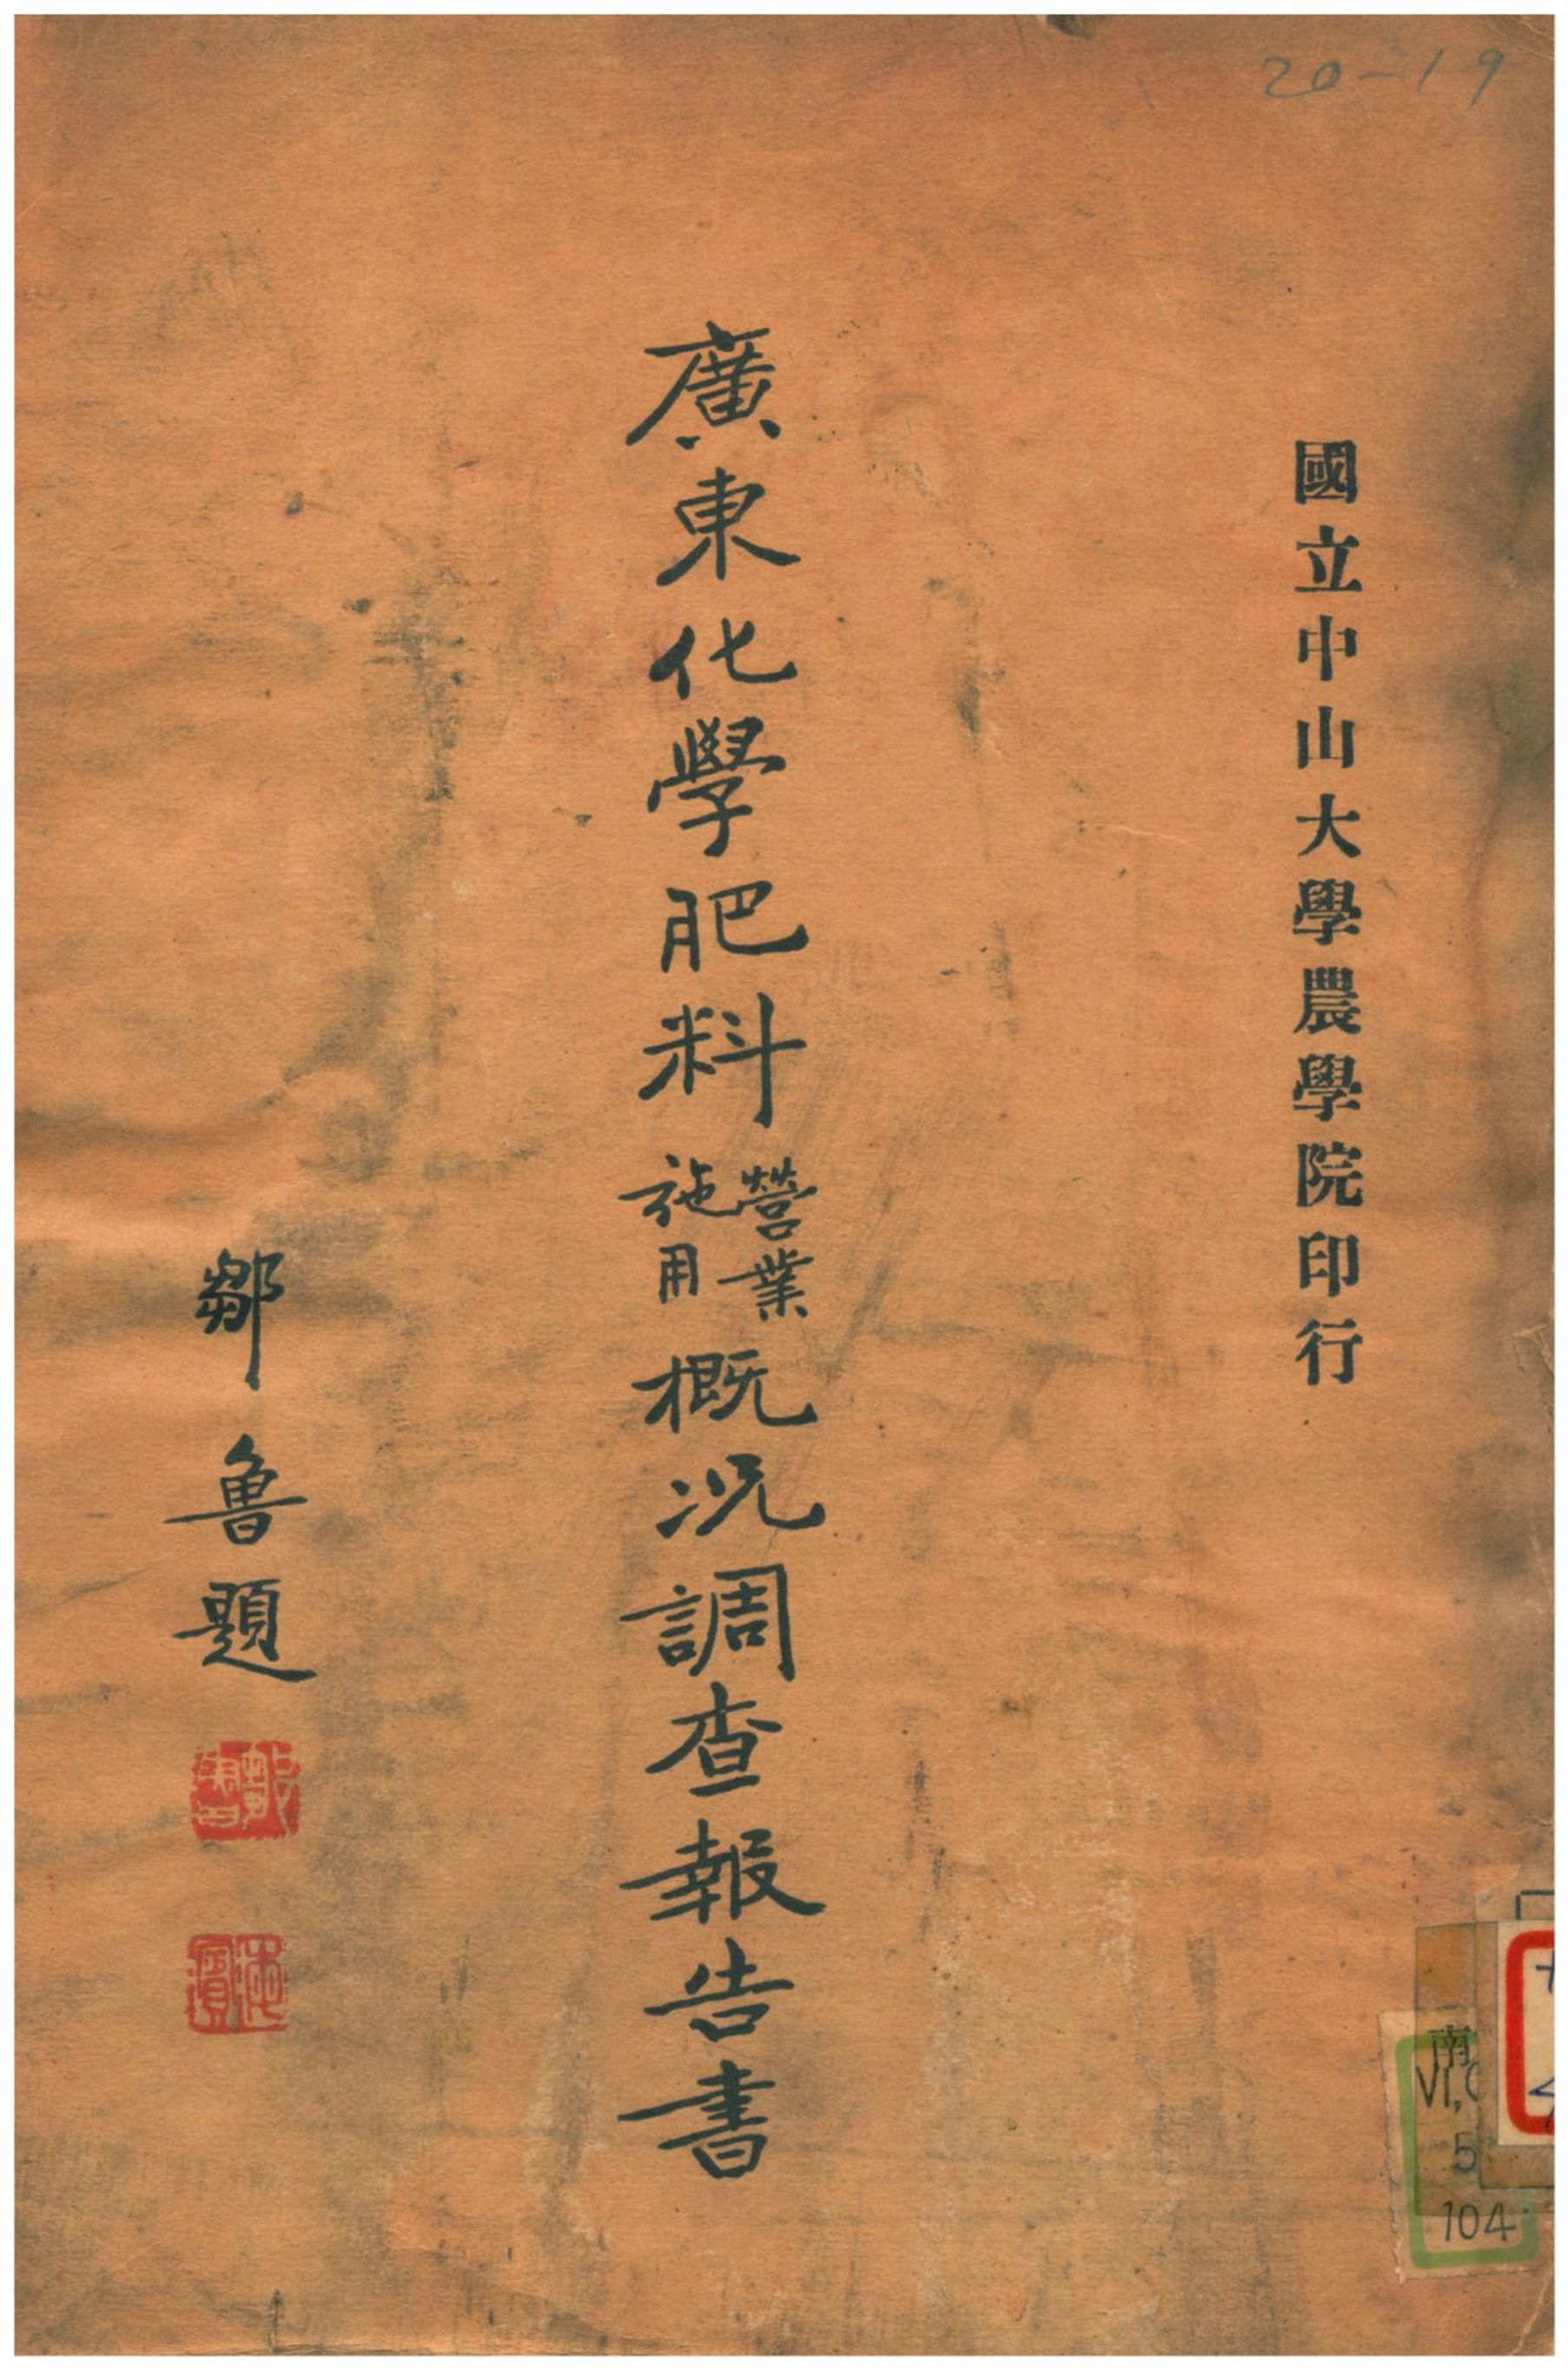 20-19
國立中山大學農學院印行
廣東化學肥料營業施用概況調查報告書
鄒魯題
南
VI,
5
104